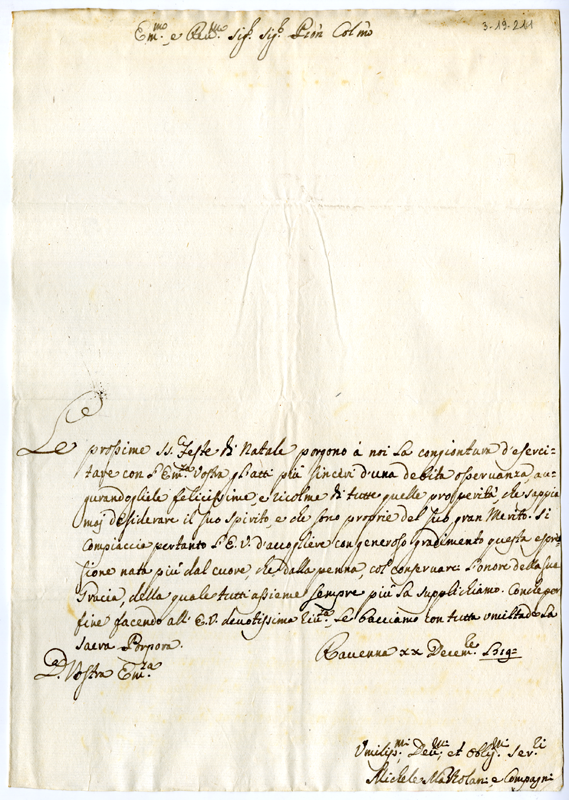 3-19-211
Em.mo e Rev.mo Sig.r Sig.r Pron Colmo
Le prossime SS. Feste di Natale porgono à noi la congiontura d'eserci=
tare con l'Em.za Vostra gl'atti più sinceri d'una debita osservanza, au=
gurandogliele felicissime, e ricolme di tutte quelle prosperità, che sappia
maj desiderare il suo spirito, e che sono proprie del suo gran Merito. Si
compiaccia pertanto l'E.V. d'accogliere con generoso gradimento questa espres
sione nata più dal cuore, che dalla penna, col conservarci l'onore della sua
Grazia, della quale tutti assieme sempre più La supplichiamo. Con che per
fine facendo all'E.V. devotissima Riv.za Le bacciamo con tutta umiltade La
Sacra Porpora.
Ravenna XX Decem.re
D. Vostra Em.za
Vmiliss.mi Dev.mi et obblig.mi Ser.ri
Michele e Compagni